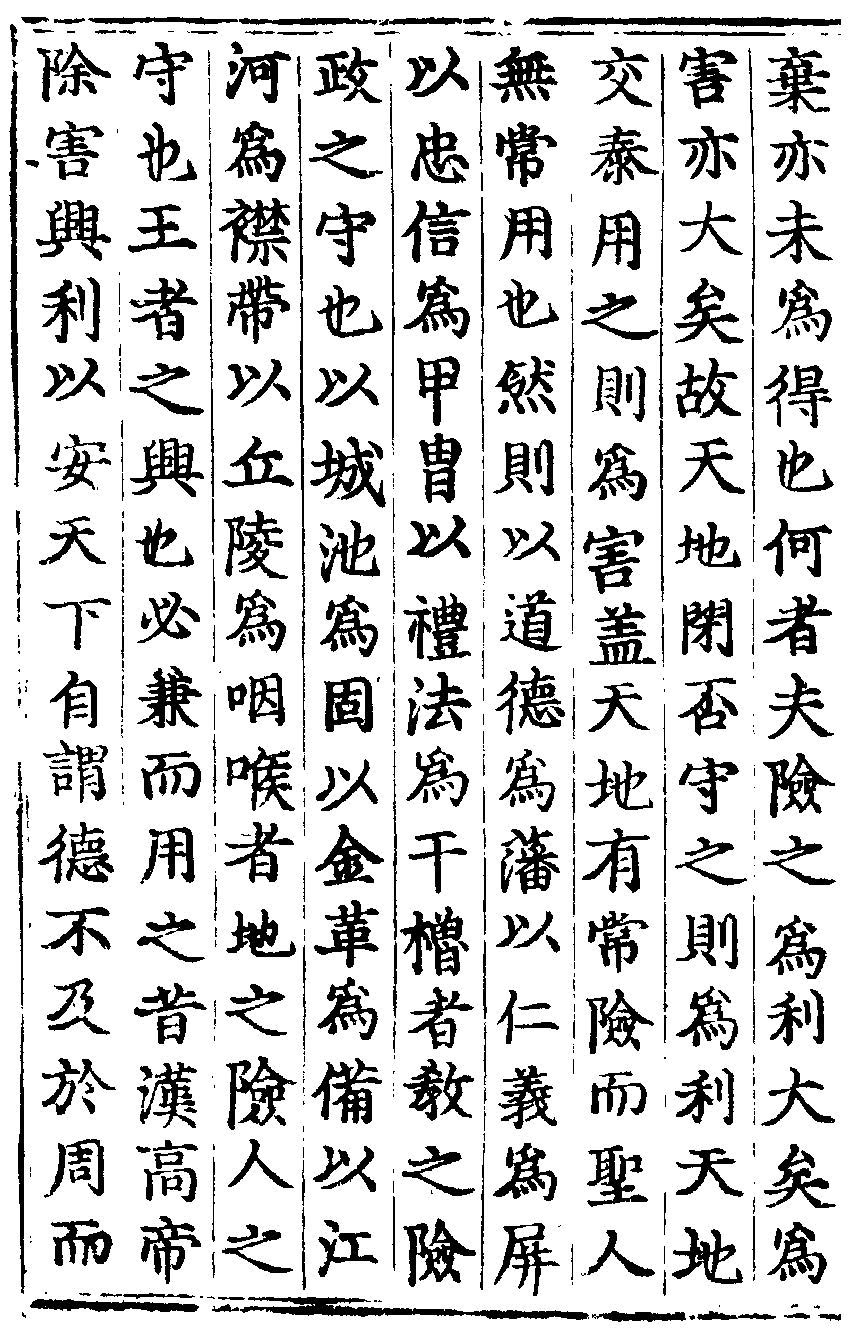 棄亦未爲得也何者夫險之爲利大矣爲
害亦大矣故天地閉否守之則爲利天地
交泰用之則爲害盖天地有常險而聖人
無常用也然則以道德爲藩以仁義爲屏
以忠信爲甲胄以禮法爲干櫓者教之險
政之守也以城池爲固以金革爲備以江
河爲襟帶以丘陵爲咽喉者地之險人之
守也王者之興也必兼而用之昔漢高帝
除害興利以安天下自謂德不及於周而